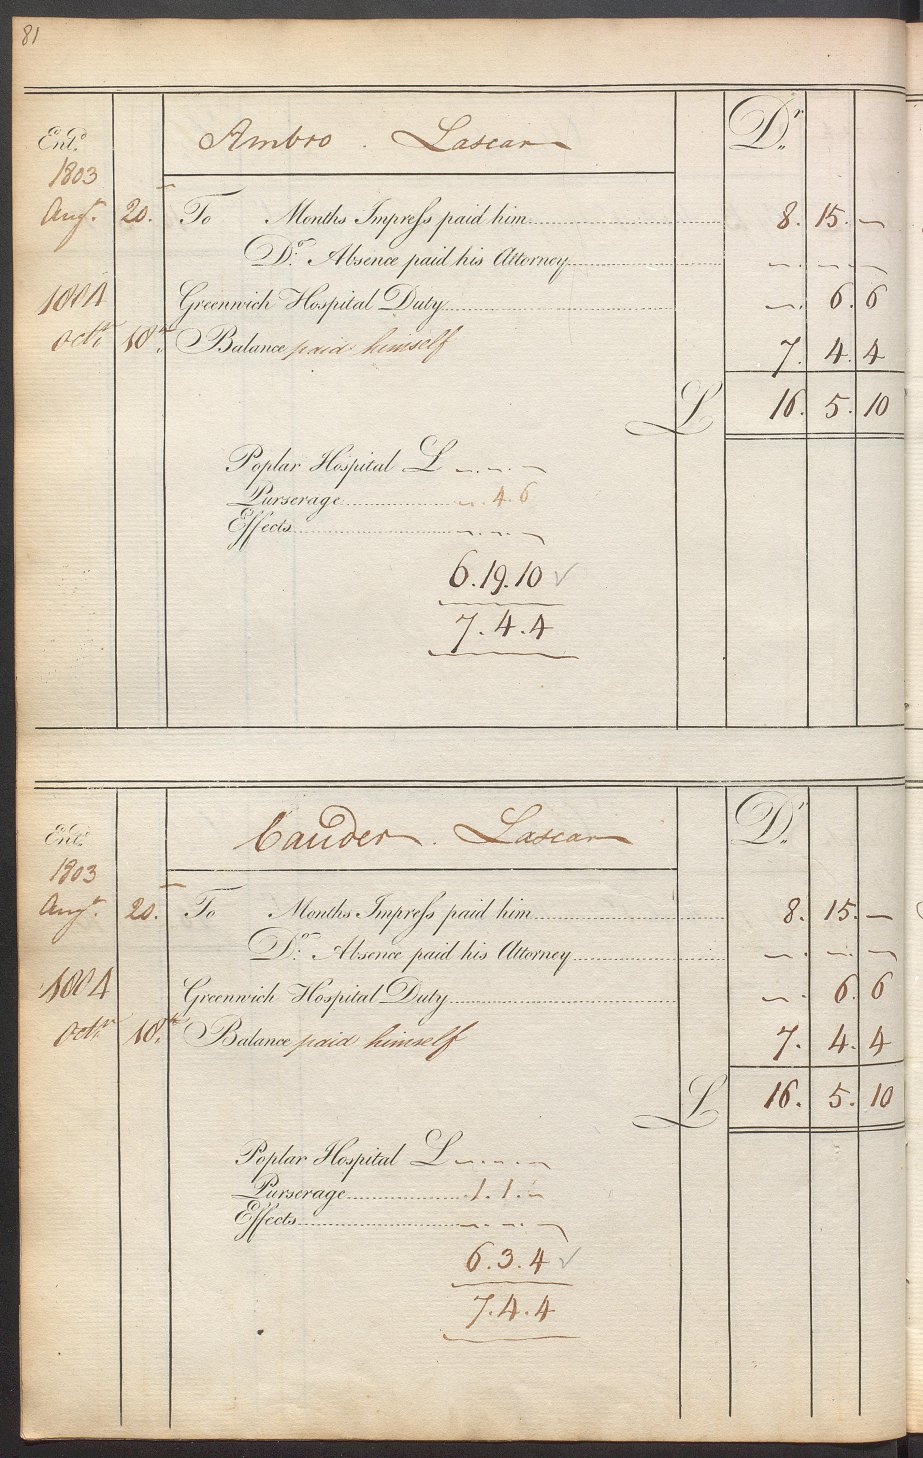 81
Ambro . Lascar Dr
Entd
1803
Augt 20. To Months Impress paid him 8. 15. —
Do Absence paid his Attorney — — —
1804 Greenwich Hospital Duty —. 6. 6
Octr 18th Balance paid himself 7. 4. 4
£ 16. 5. 10
Poplar Hospital £ —.—.—
Purserage —. 4. 6
Effects —.—.—
6. 19. 10 ✓
7. 4. 4
Cauder . Lascar Dr
Entd
1803
Augt 20. To Months Impress paid him 8. 15. —
Do Absence paid his Attorney —. —. —
1804 Greenwich Hospital Duty —. 6. 6
Octr 18th Balance paid himself 7. 4. 4
£ 16. 5. 10
Poplar Hospital £ —.—.—
Purserage 1. 1. —
Effects —.—.—
6. 3. 4 ✓
7. 4. 4